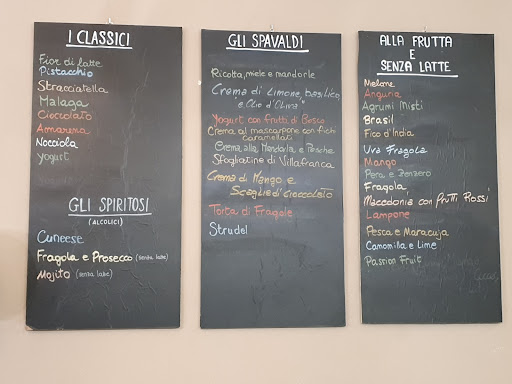 I CLASSICI
Fior di latte
Pistacchio
Stracciatella
Malaga
Cioccolato
Amarena
Nocciola
Yogurt
GLI SPIRITOSI
(ALCOLICI)
Cuneese
Fragola e Prosecco (senza latte)
Mojito (senza latte)
GLI SPAVALDI
Ricotta, miele e mandorle
Crema di Limone, basilico,
e Olio d'Oliva
Yogurt con frutti di Bosco
Crema al mascarpone con fichi
caramellati
Crema alla Mandorla e Pesche
Sfogliatine di Villafranca
Crema di Mango e
Scaglie di cioccolato
Torta di Fragole
Strudel
ALLA FRUTTA
E
SENZA LATTE
Melone
Anguria
Agrumi Misti
Brasil
Fico d'India
Uva Fragola
Mango
Pera e Zenzero
Fragola
Macedonia con Frutti Rossi
Lampone
Pesca e Maracuja
Camomilla e Lime
Passion Fruit